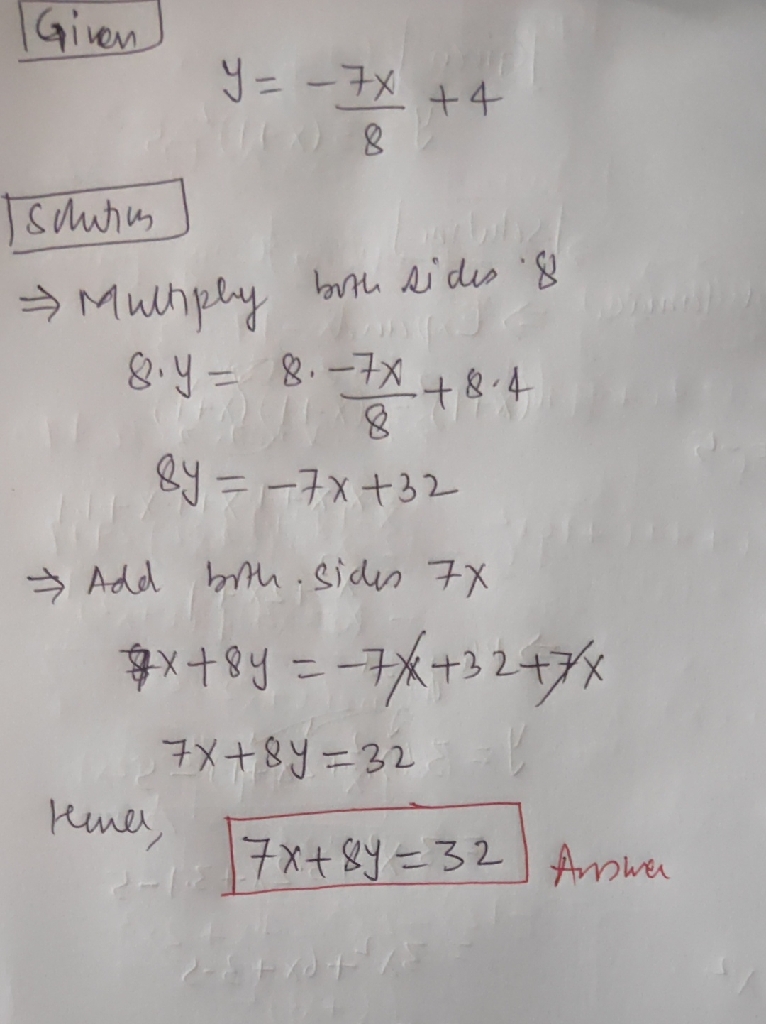 Given
y = -7x/8 + 4
Solution
⇒ Multiply both sides 8
8·y = 8·-7x/8 + 8·4
8y = -7x + 32
⇒ Add both sides 7x
7x + 8y = -7x + 32 + 7x
7x + 8y = 32
Hence,
7x + 8y = 32 Answer